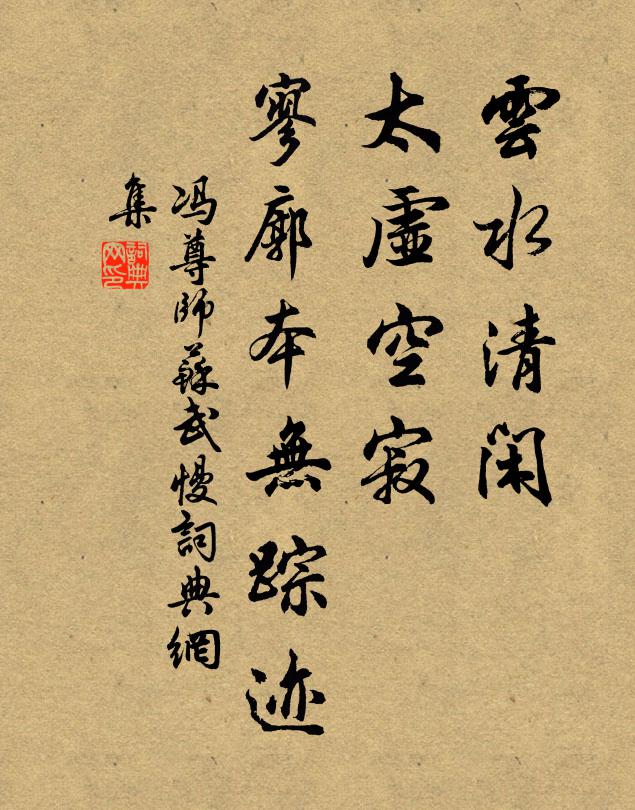 雲水清閑
太虛空寂
寥廓本無踪迹
冯尊師蘇武慢詞典網
集
詞典
网印